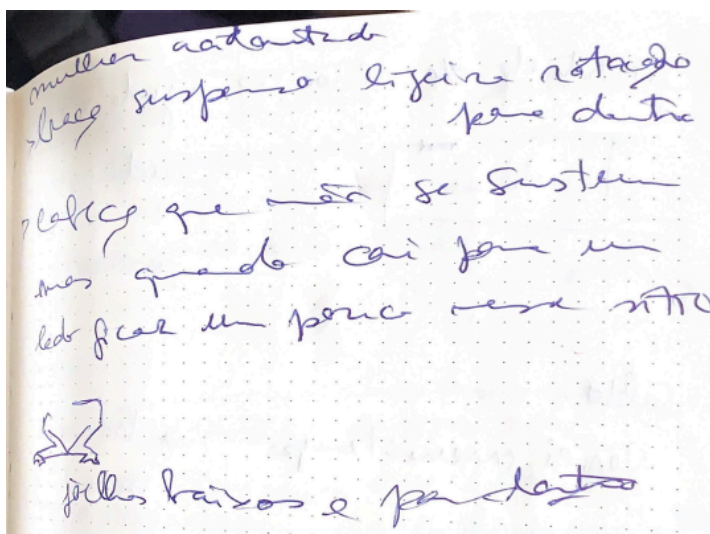 mulher
> braço suspenso ligeira rotação
para dentro
> cabeça que não se sustem
mas quando cai para um
lado ficar um pouco nesse sítio
joelhos baixos e para dentro